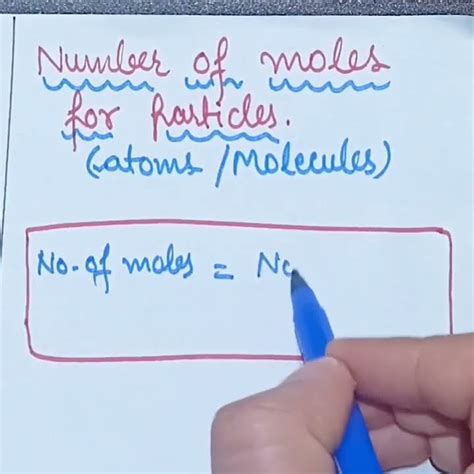 Number of moles
for Particles.
(atoms/Molecules)
No. of moles = No